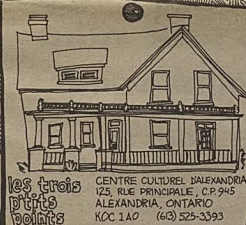 les trois
p'tits
points
CENTRE CULTUREL D'ALEXANDRIA
125, RUE PRINCIPALE, C.P. 945
ALEXANDRIA, ONTARIO
K0C 1A0 (613) 525-3393